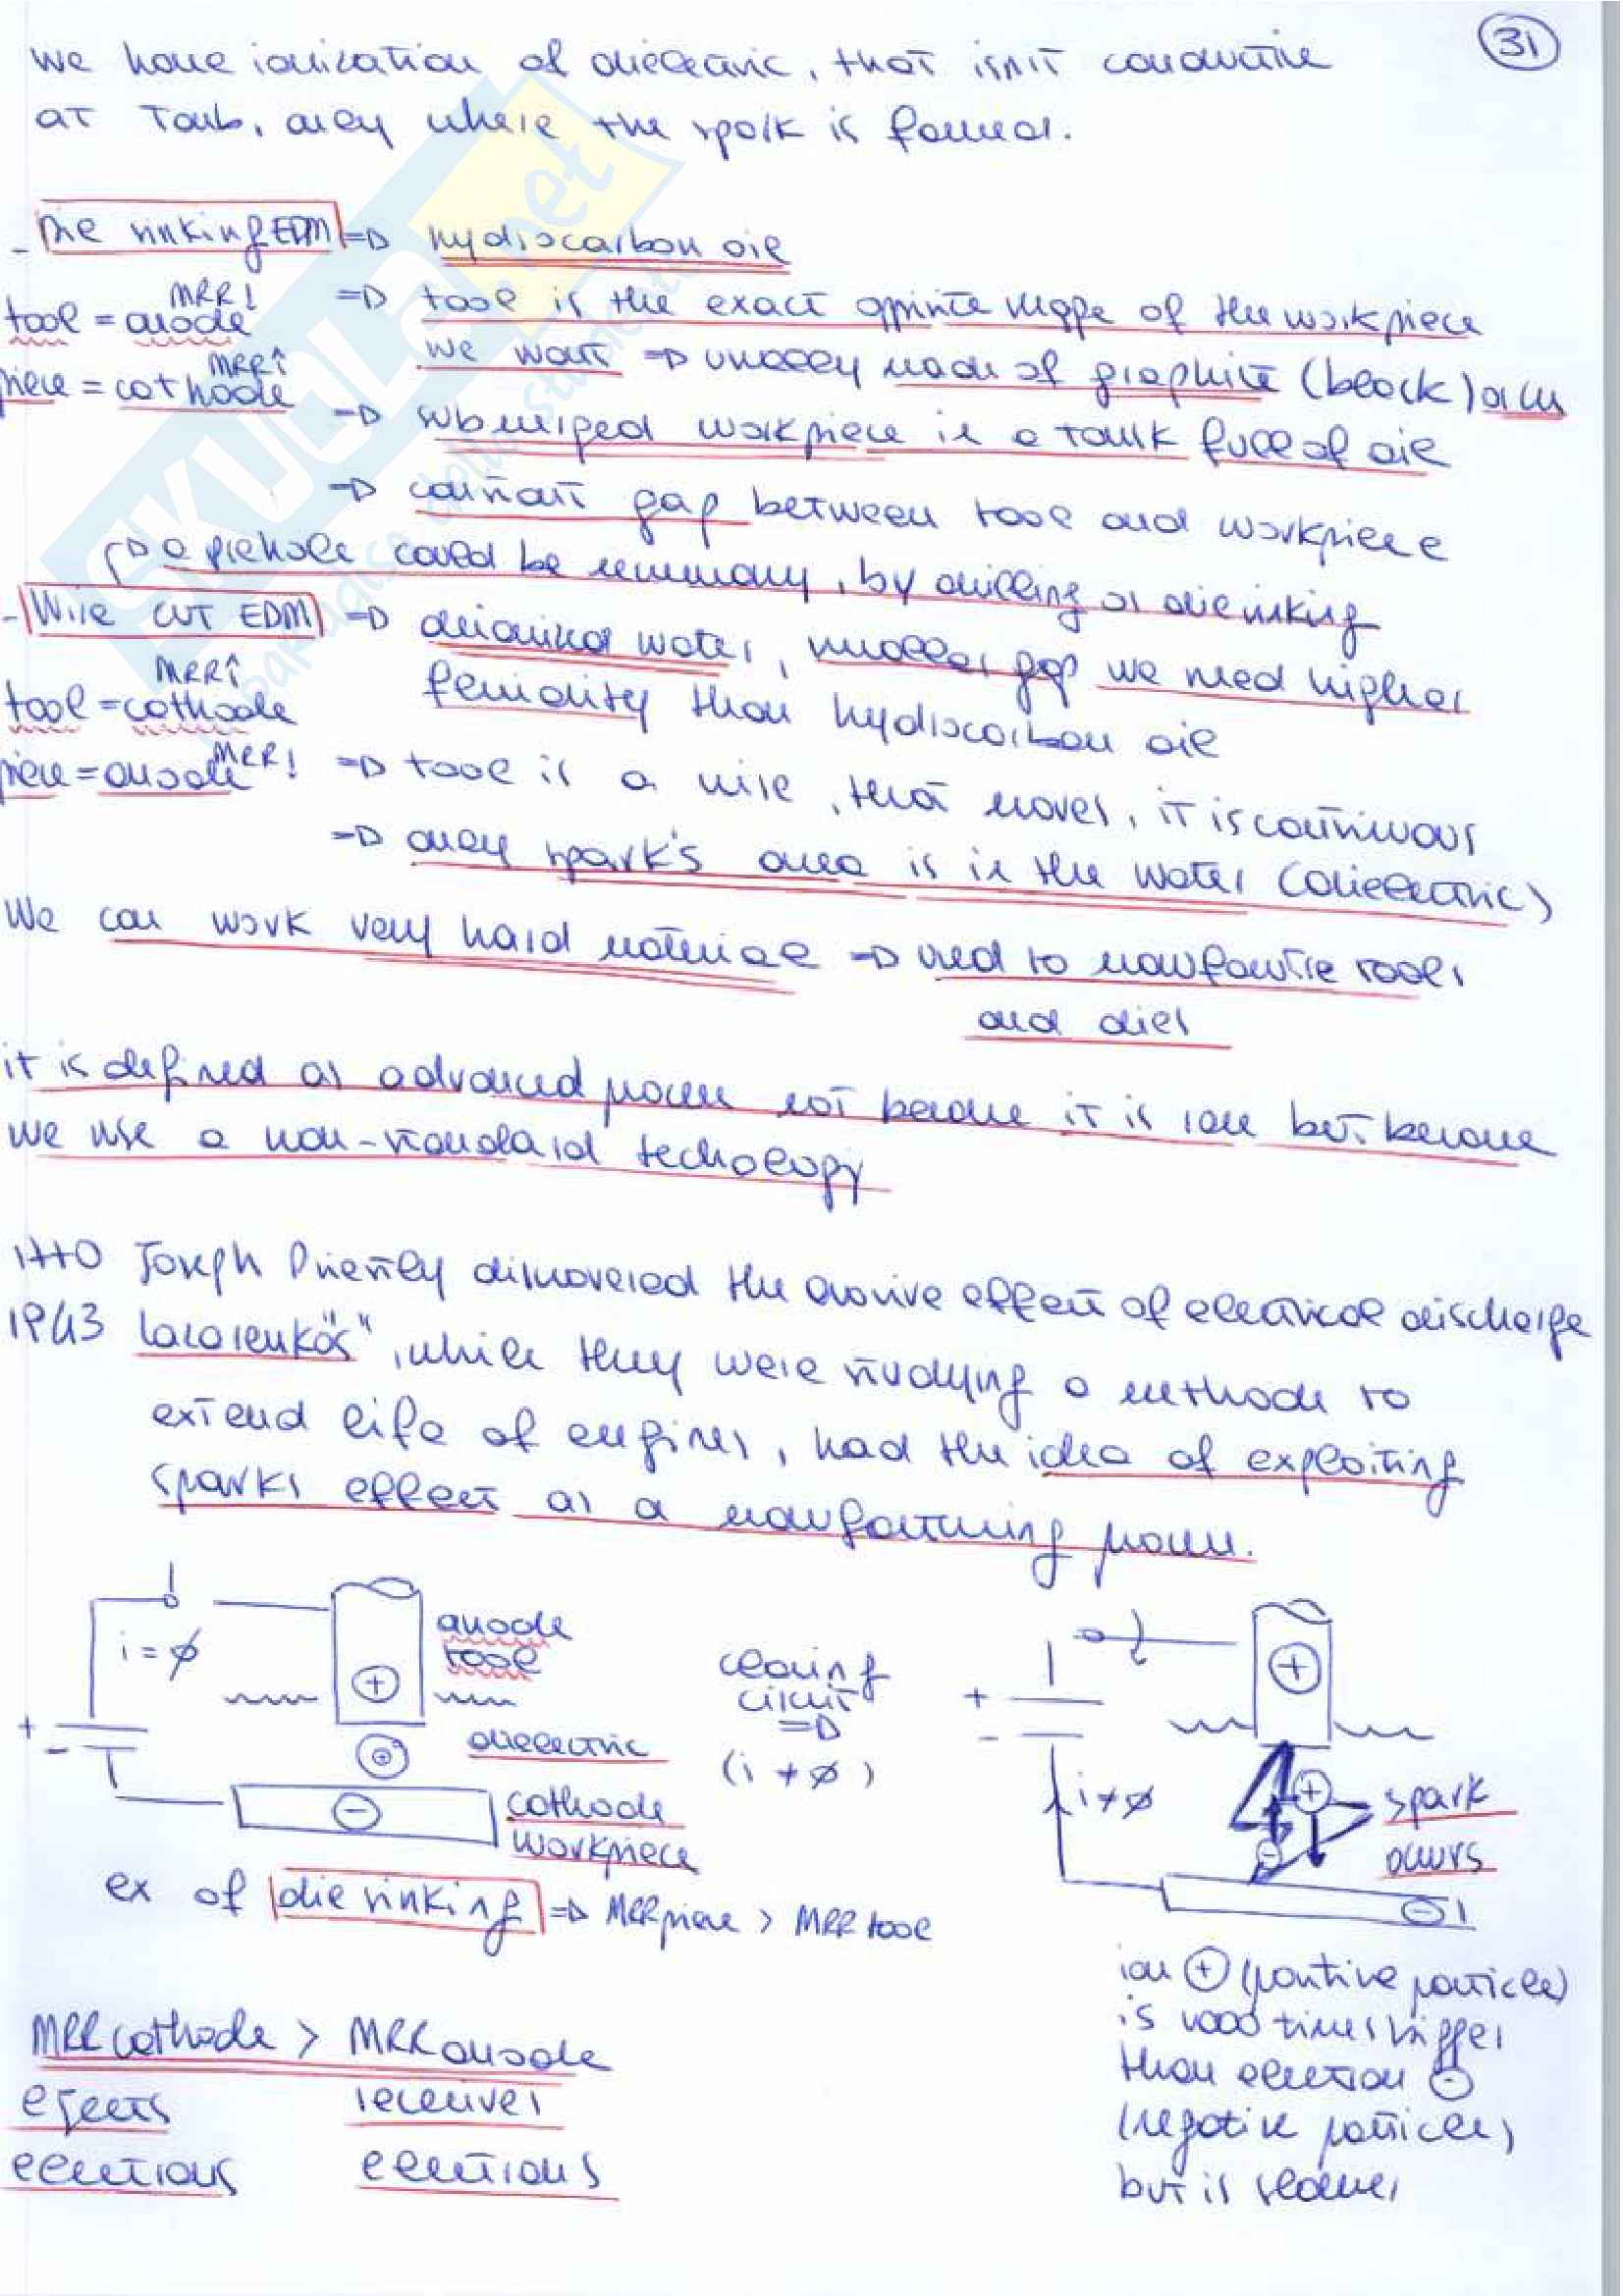 31
we have ionization of dielectric, that isn't conductive
at Tamb, only where the spark is formed.
- Die sinking EDM => hydrocarbon oil
tool = anode MRR↓ => tool is the exact opposite shape of the workpiece
piece = cathode MRR↑ we want => usually made of graphite (block) or Cu
=> submerged workpiece in a tank full of oil
=> constant gap between tool and workpiece
=> a prehole could be necessary, by drilling or die sinking
- Wire cut EDM => deionized water, smaller gap we need higher
tool = cathode MRR↑ fluidity than hydrocarbon oil
piece = anode MRR↓ => tool is a wire, that moves, it is continuous
=> only spark's area is in the water (dielectric)
We can work very hard material => used to manufacture tools
and dies
it is defined as advanced process not because it is rare but because
we use a non-standard techology
1770 Joseph Priestley discovered the erosive effect of electrical discharge
1943 Lazarenko's", while they were studying a methode to
extend life of engines, had the idea of exploiting
sparks effect as a manufacturing process.
i = ∅
anode
tool
+
-
dielectric
cathode
workpiece
closing
circuit
=>
(i ≠ ∅)
+
-
i ≠ ∅
spark
occurs
ex of die sinking => MRR piece > MRR tool
ion ⊕ (positive particle)
is 1000 times bigger
than electron ⊖
(negative particle)
but is slower
MRR cathode > MRR anode
ejects receives
electrons electrons